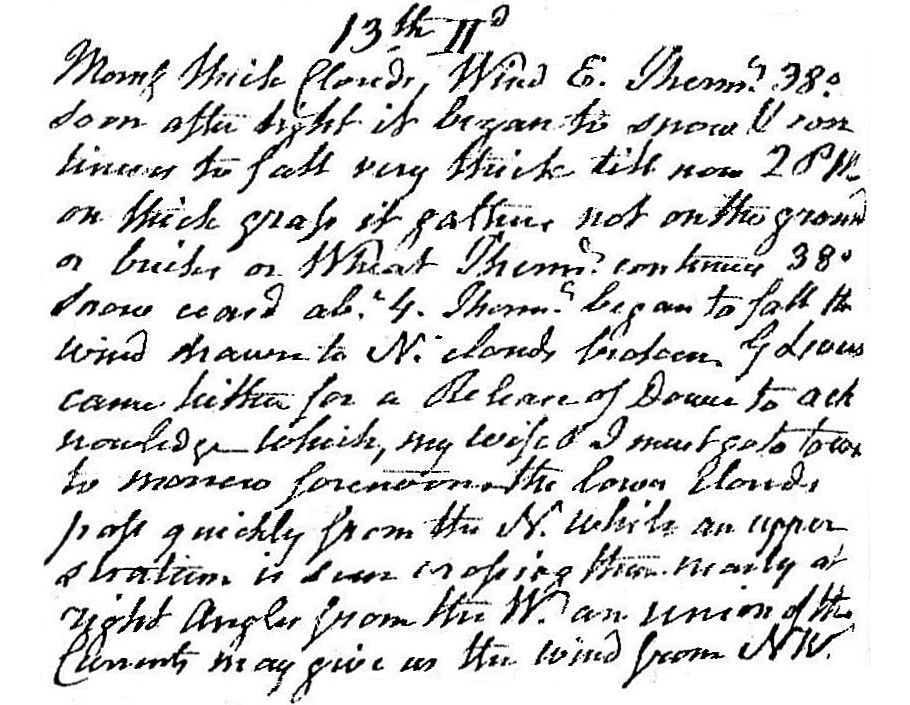 13th IId
Morng thick Clouds, Wind E. Thermr. 38°
soon after light it began to snow & con
tinues to fall very thick till now 2 PM
on thick grass it gathers not on the ground
or bricks or Wheat Thermr. continues 38°
Snow ceased abt. 4. Thermr. began to fall the
wind drawn to N. clouds broken. G
came hither for a Release of Dower to ack
nowledge which, my wife & I must go to town
to morrow forenoon. the lower Clouds
pass quickly from the N. while an upper
stratum is seen crossing them nearly at
right Angles from the W. an union of the
Currents may give us the wind from NW.